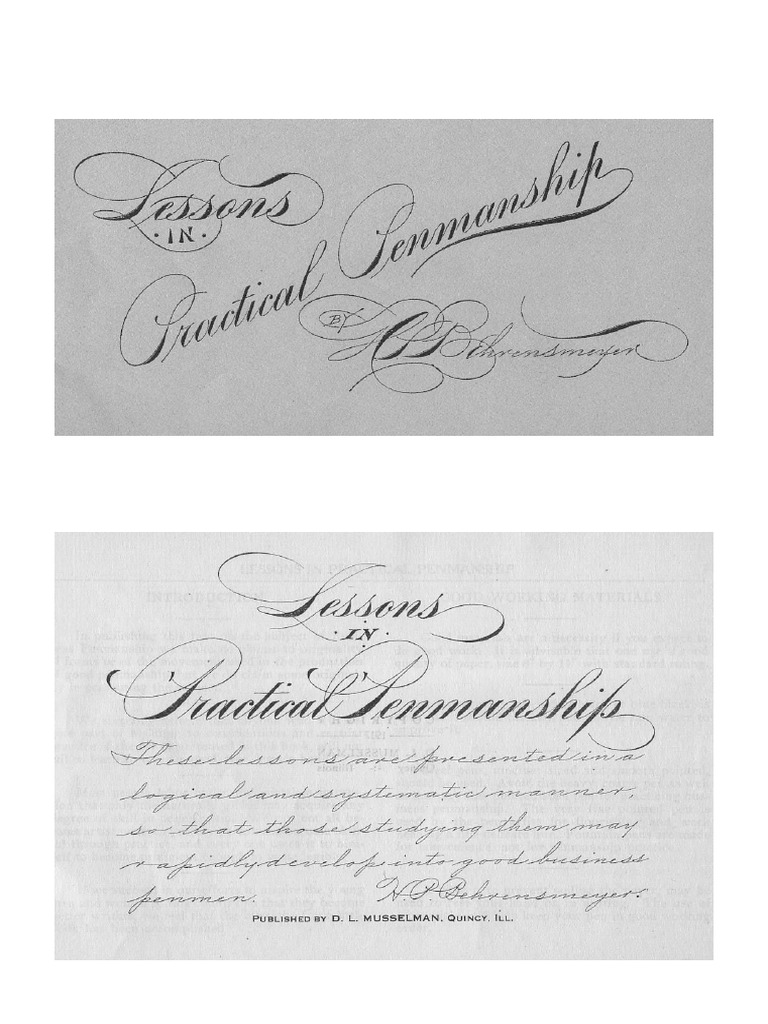 Lessons
· IN ·
Practical Penmanship
BY H P Behrensmeyer
Lessons
· IN ·
Practical Penmanship
These lessons are presented in a
logical and systematic manner,
so that those studying them may
rapidly develop into good business
penmen. H. P. Behrensmeyer.
PUBLISHED BY D. L. MUSSELMAN, QUINCY, ILL.